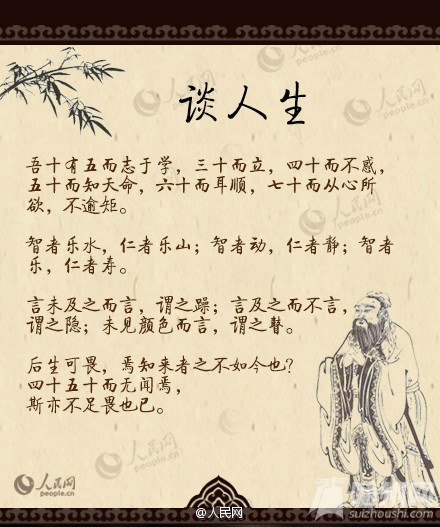 人民网
people.cn
谈人生
吾十有五而志于学，三十而立，四十而不惑，
五十而知天命，六十而耳顺，七十而从心所
欲，不逾矩。
智者乐水，仁者乐山；智者动，仁者静；智者
乐，仁者寿。
言未及之而言，谓之躁；言及之而不言，
谓之隐；未见颜色而言，谓之瞽。
后生可畏，焉知来者之不如今也？
四十五十而无闻焉，
斯亦不足畏也已。
人民网
people.cn
@人民网
suizhoushi.com